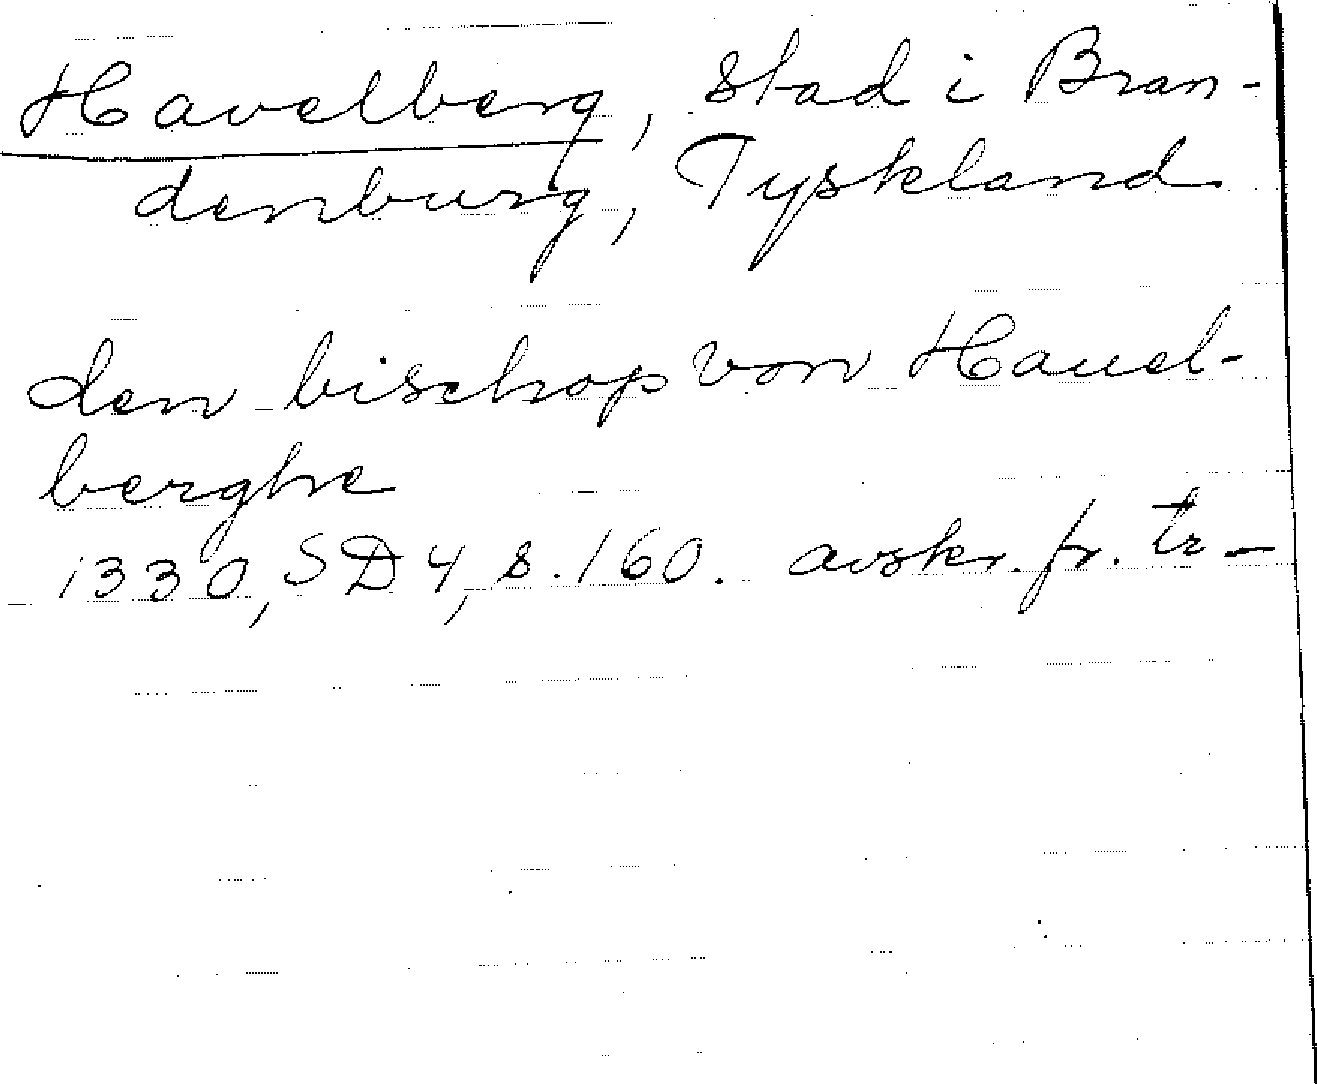 Havelberg, stad i Bran-
denburg, Tyskland
den bischop von Hauel-
berghe
1330, SD 4, s. 160. avskr. fr. tr-